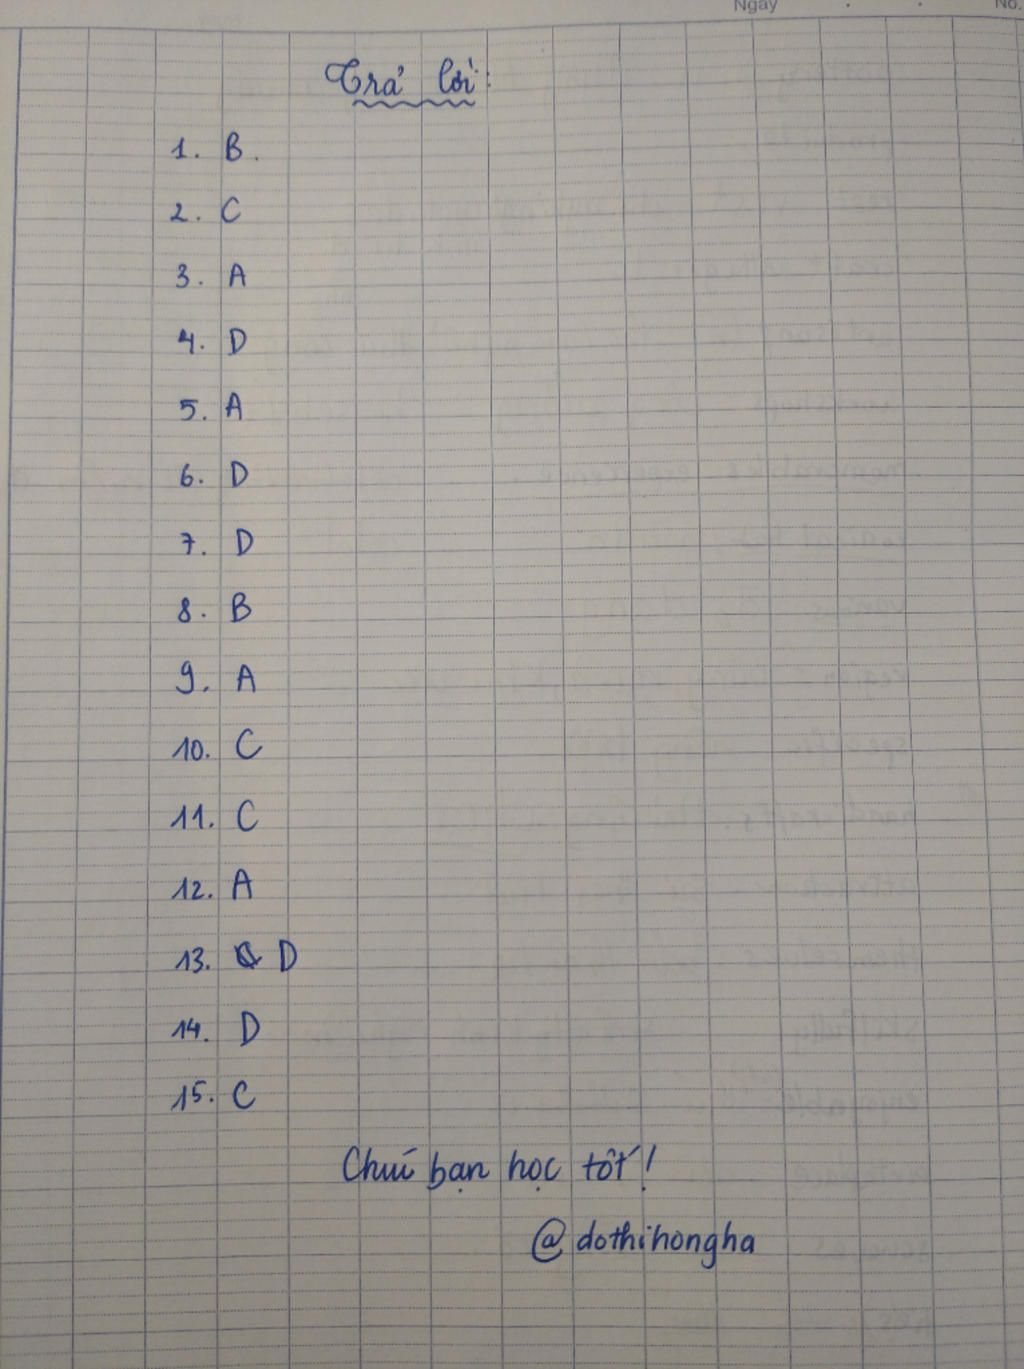 Ngày No.
Trả lời:
1. B.
2. C
3. A
4. D
5. A
6. D
7. D
8. B
9. A
10. C
11. C
12. A
13. D
14. D
15. C
Chúc bạn học tốt!
@dothihongha